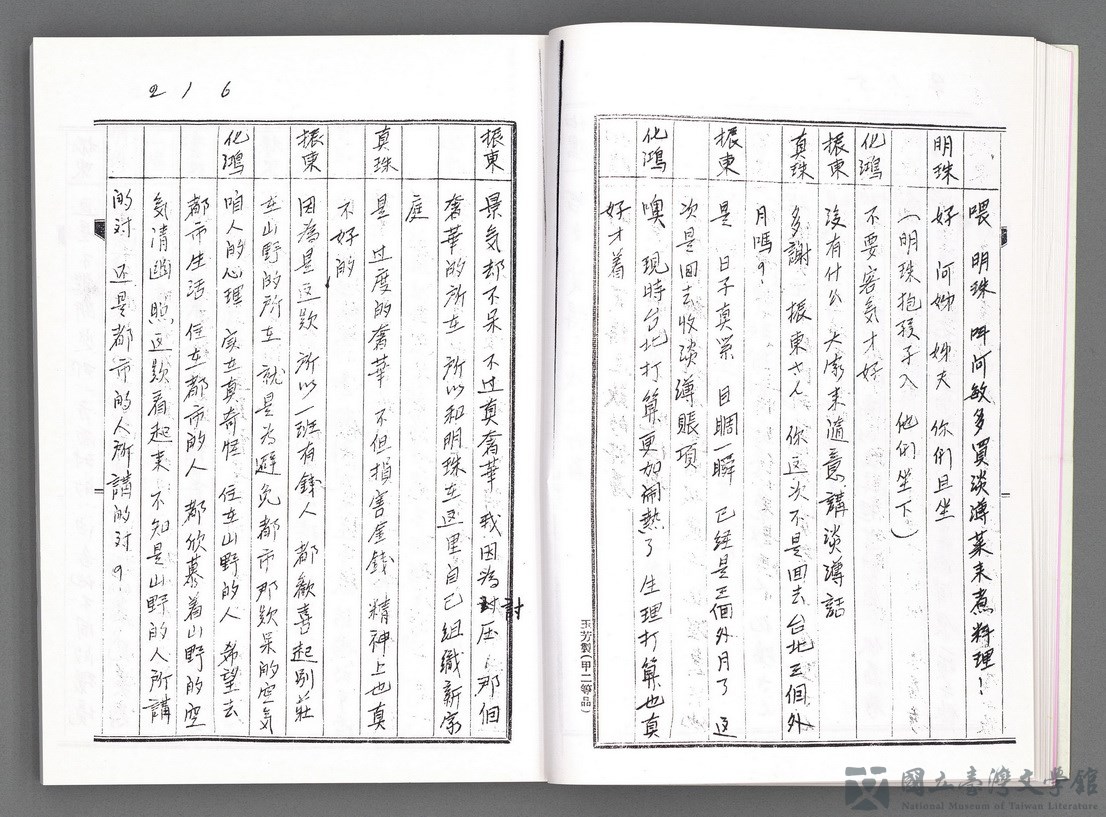 喂 明珠 叫阿敏多買淡薄菜来煮料理！
明珠 好 阿姊 姊夫 你们且坐
（明珠抱孩子入 他们坐下）
化鴻 不要客気才好
振東 沒有什么 大家来隨意講淡薄話
真珠 多謝 振東さん 你这次不是回去台北三個外
月嗎？
振東 是 日子真緊 目睭一瞬 已経是三個外月了 这
次是回去收淡薄賬項
化鴻 噢 現時台北打算更加鬧熱了 生理打算也真
好才着
玉芳製（甲二等品）
216
振東 景気却不呆 不过真奢華 我因為討圧 那個
奢華的所在 所以和明珠在这里自己組織新家
庭
真珠 是 过度的奢華 不但損害金錢 精神上也真
不好的
振東 因為是这款 所以一班有錢人 都歡喜起別莊
在山野的所在 就是為避免都市那款呆的空気
化鴻 咱人的心理 实在真奇怪 住在山野的人 希望去
都市生活 住在都市的人 都欣慕着山野的空
気清幽 照这款看起来 不知是山野的人所講
的对 还是都市的人所講的对？
國立臺灣文學館
National Museum of Taiwan Literature